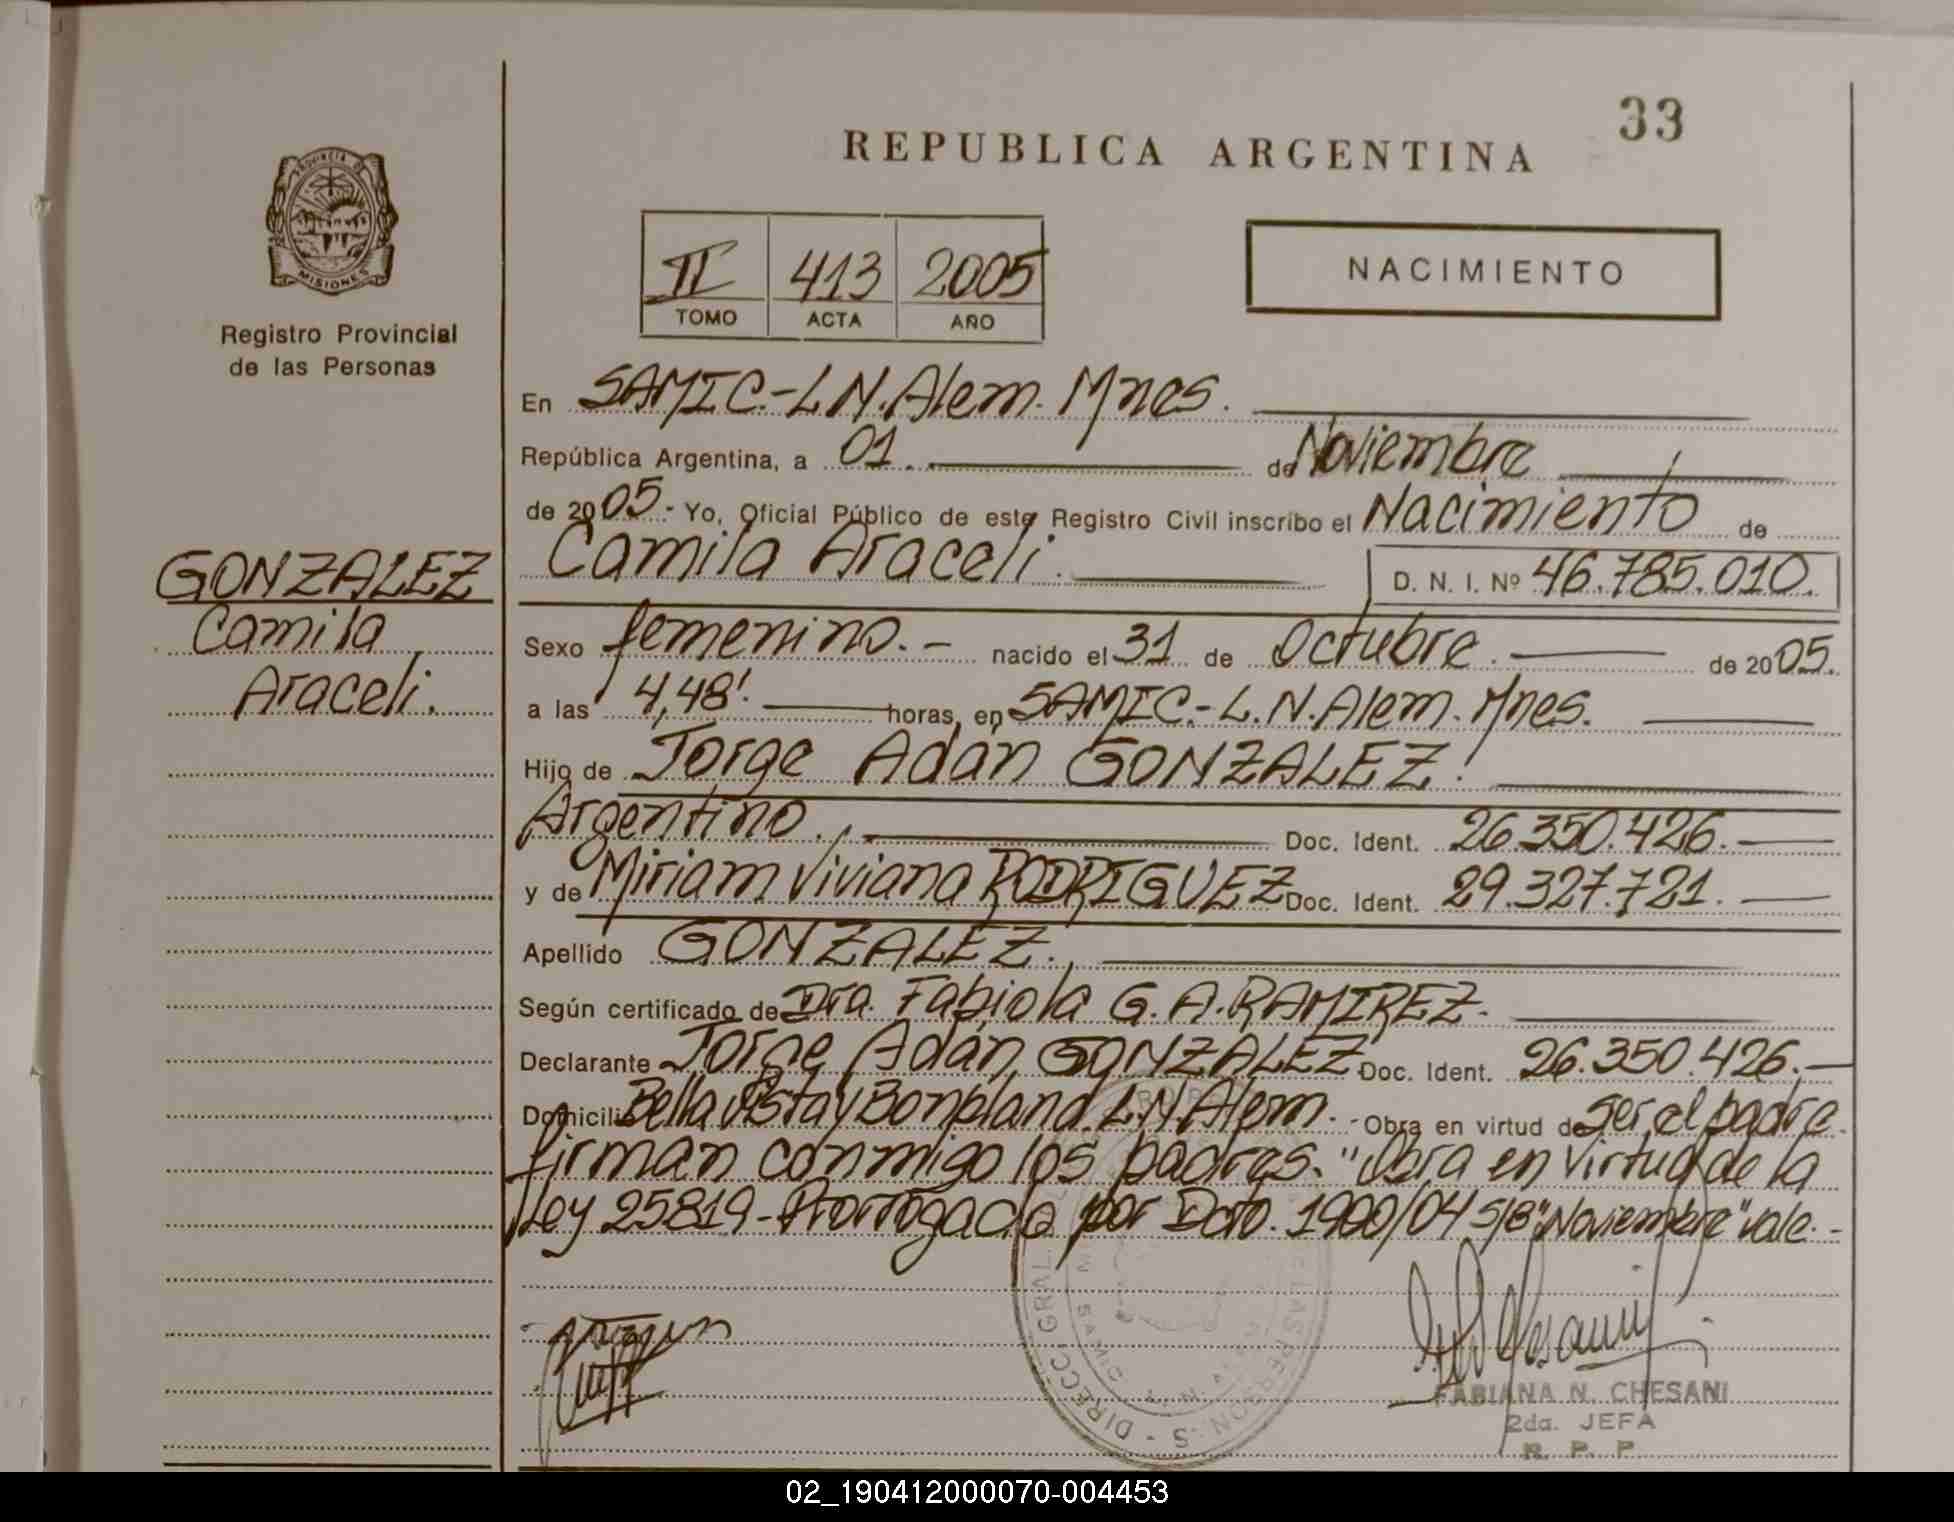 33
REPUBLICA ARGENTINA
PROVINCIA DE
MISIONES
Registro Provincial
de las Personas
II 413 2005
TOMO ACTA AÑO
NACIMIENTO
En SAMIC.-L N. Alem. Mnes.
República Argentina, a 01. de Noviembre
de 2005.- Yo, Oficial Público de este Registro Civil inscribo el Nacimiento de
Camila Araceli. D. N. I. Nº 46.785.010.
GONZALEZ
Camila
Araceli.
Sexo femenino.- nacido el 31 de Octubre. de 2005.
a las 4,48'. horas, en SAMIC.-L.N.Alem. Mnes.
Hijo de Jorge Adán GONZALEZ.
Argentino. Doc. Ident. 26.350.426.
y de Miriam Viviana RODRIGUEZ Doc. Ident. 29.327.721.
Apellido GONZALEZ.
Según certificado de Dra. Fabiola G. A. RAMIREZ.
Declarante Jorge Adán GONZALEZ Doc. Ident. 26.350.426.-
Domicilio Bella Vista y Bonpland. L.N. Alem.- Obra en virtud de ser el padre.
firman conmigo los padres. "Obra en virtud de la
Ley 25819-Prorrogada por Dcto. 1900/04 S/B "Noviembre" vale.-
FABIANA N. CHESANI
2da. JEFA
R. P. P.
02_190412000070-004453